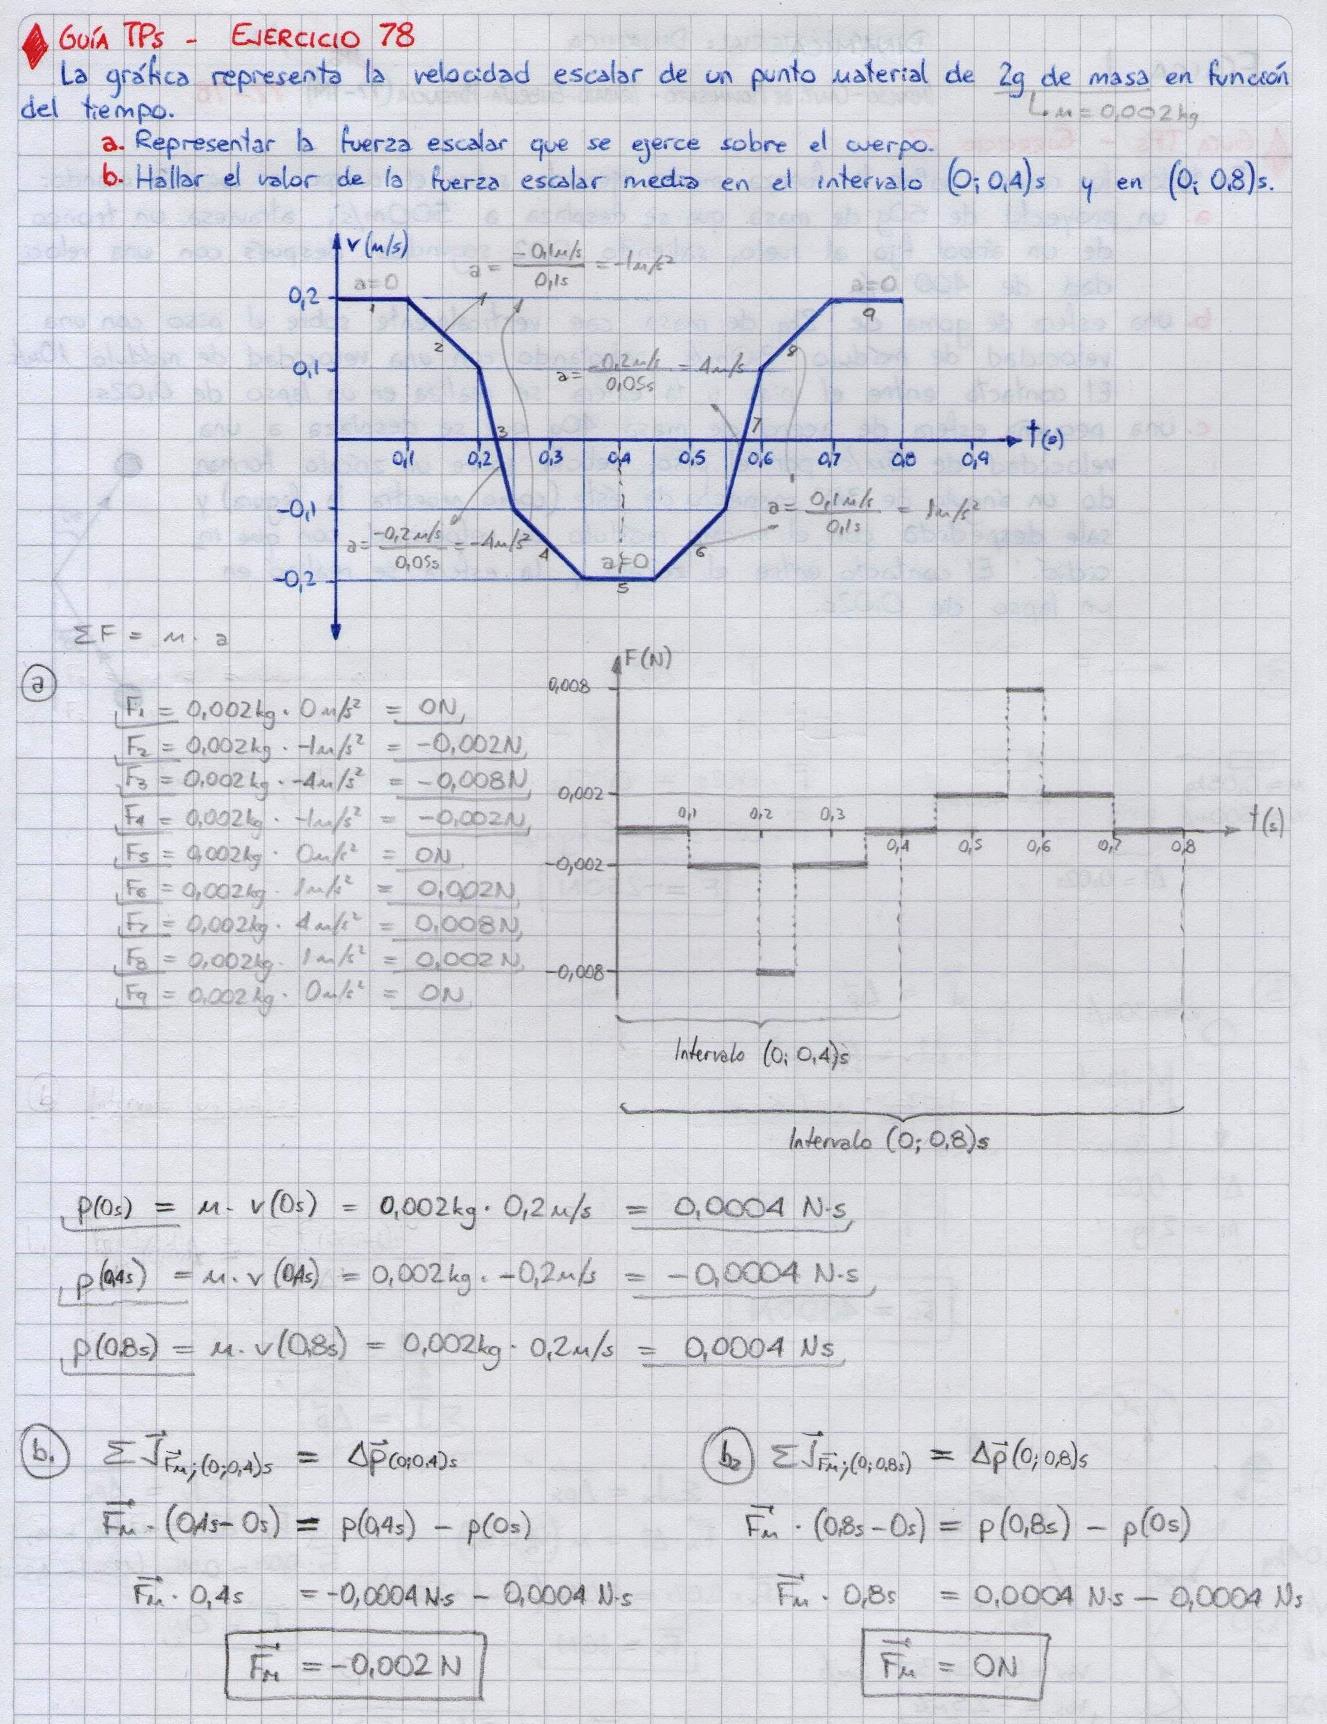 GUÍA TPs - EJERCICIO 78
La gráfica representa la velocidad escalar de un punto material de 2g de masa en función
m = 0,002kg
del tiempo.
a. Representar la fuerza escalar que se ejerce sobre el cuerpo.
b. Hallar el valor de la fuerza escalar media en el intervalo (0; 0,4)s y en (0; 0,8)s.
v (m/s)
a = -0,1m/s / 0,1s = -1m/s²
a=0
a=0
0,2
1
9
2
8
0,1
a = 0,2m/s / 0,05s = 4m/s²
3
7
0,1 0,2 0,3 0,4 0,5 0,6 0,7 0,8 0,9 t(s)
-0,1
a = 0,1m/s / 0,1s = 1m/s²
a = -0,2m/s / 0,05s = -4m/s²
4
6
a=0
-0,2
5
ΣF = m · a
a
F1 = 0,002kg · 0m/s² = 0N
F2 = 0,002kg · -1m/s² = -0,002N
F3 = 0,002kg · -4m/s² = -0,008N
F4 = 0,002kg · -1m/s² = -0,002N
F5 = 0,002kg · 0m/s² = 0N
F6 = 0,002kg · 1m/s² = 0,002N
F7 = 0,002kg · 4m/s² = 0,008N
F8 = 0,002kg · 1m/s² = 0,002N
F9 = 0,002kg · 0m/s² = 0N
F(N)
0,008
0,002
0,1 0,2 0,3
t(s)
0,4 0,5 0,6 0,7 0,8
-0,002
-0,008
Intervalo (0; 0,4)s
Intervalo (0; 0,8)s
p(0s) = m · v(0s) = 0,002kg · 0,2m/s = 0,0004 N·s
p(0,4s) = m · v(0,4s) = 0,002kg · -0,2m/s = -0,0004 N·s
p(0,8s) = m · v(0,8s) = 0,002kg · 0,2m/s = 0,0004 Ns
b1 ΣJ⃗ F⃗m;(0;0,4)s = Δp⃗(0;0,4)s
F⃗m · (0,4s-0s) = p(0,4s) - p(0s)
F⃗m · 0,4s = -0,0004 N·s - 0,0004 N·s
F⃗m = -0,002 N
b2 ΣJ⃗ F⃗m;(0;0,8s) = Δp⃗(0; 0,8)s
F⃗m · (0,8s-0s) = p(0,8s) - p(0s)
F⃗m · 0,8s = 0,0004 N·s - 0,0004 Ns
F⃗m = 0N